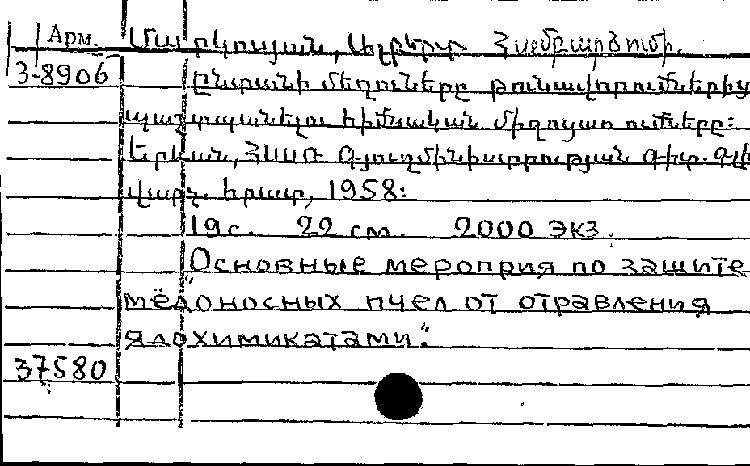 Арм. Մարկոսյան, Ալբերտ Համբարձումի.
3-8906 Ընտանի մեղուները թունավորումներից
պաշտպանելու հիմնական միջոցառումները:
Երևան, ՀՍՍՌ Գյուղմինիստրության Գիտ.
վարչ. հրատ, 1958:
19 с. 22 см. 2000 экз.
"Основные мероприя по защите
мёдоносных пчел от отравления
ядохимикатами".
37580